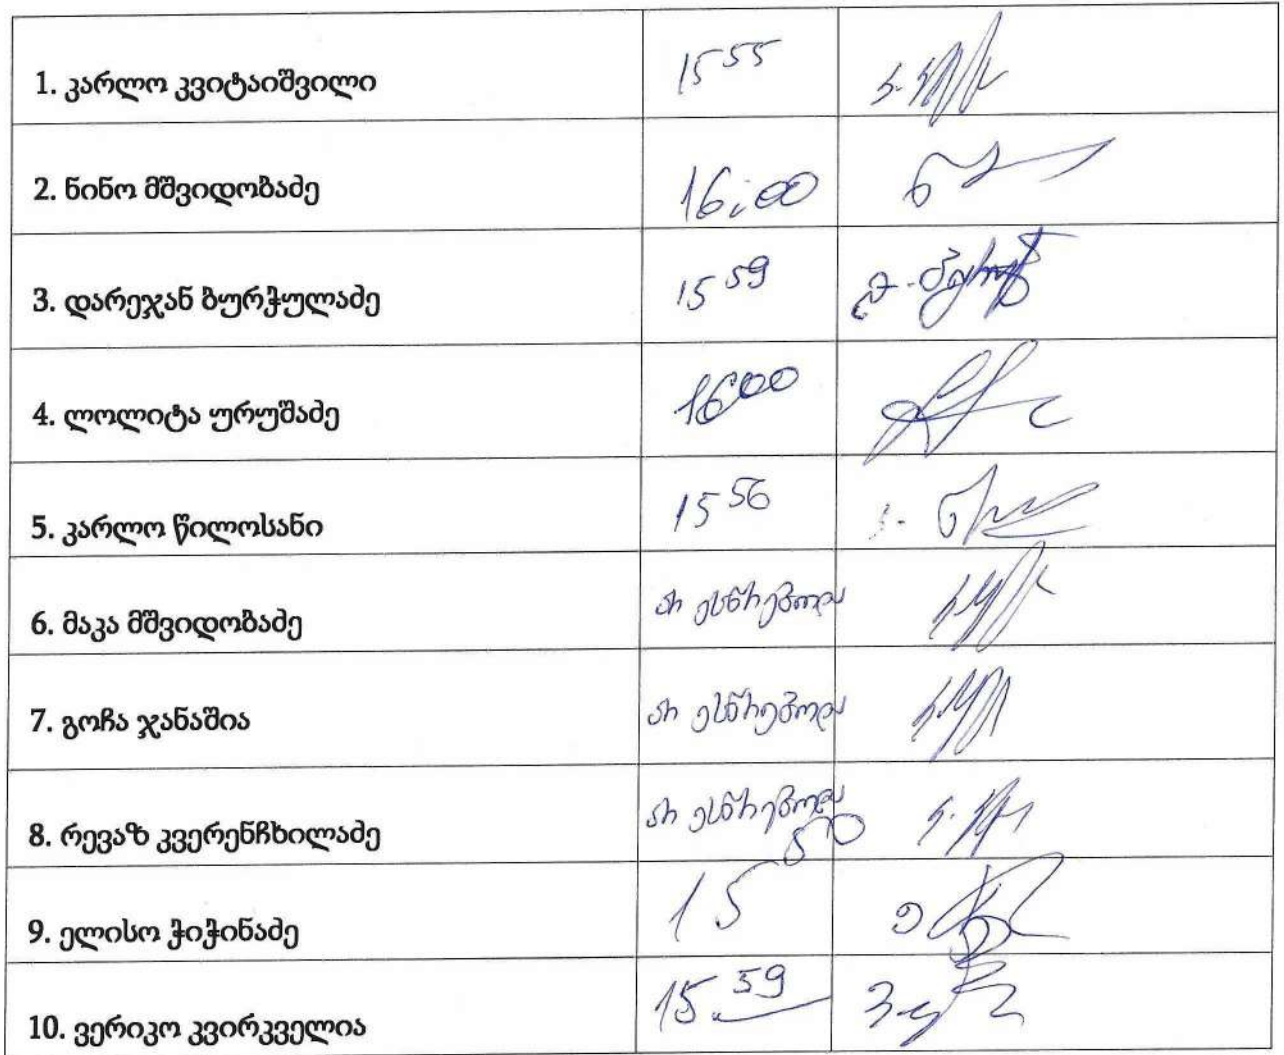 1. კარლო კვიტაიშვილი 15 55
2. ნინო მშვიდობაძე 16:00
3. დარეჯან ბურჭულაძე 15 59
4. ლოლიტა ურუშაძე 16 00
5. კარლო წილოსანი 15 56
6. მაკა მშვიდობაძე არ ესწრებოდა
7. გოჩა ჯანაშია არ ესწრებოდა
8. რევაზ კვერენჩხილაძე არ ესწრებოდა
9. ელისო ჭიჭინაძე 15 50
10. ვერიკო კვირკველია 15. 59